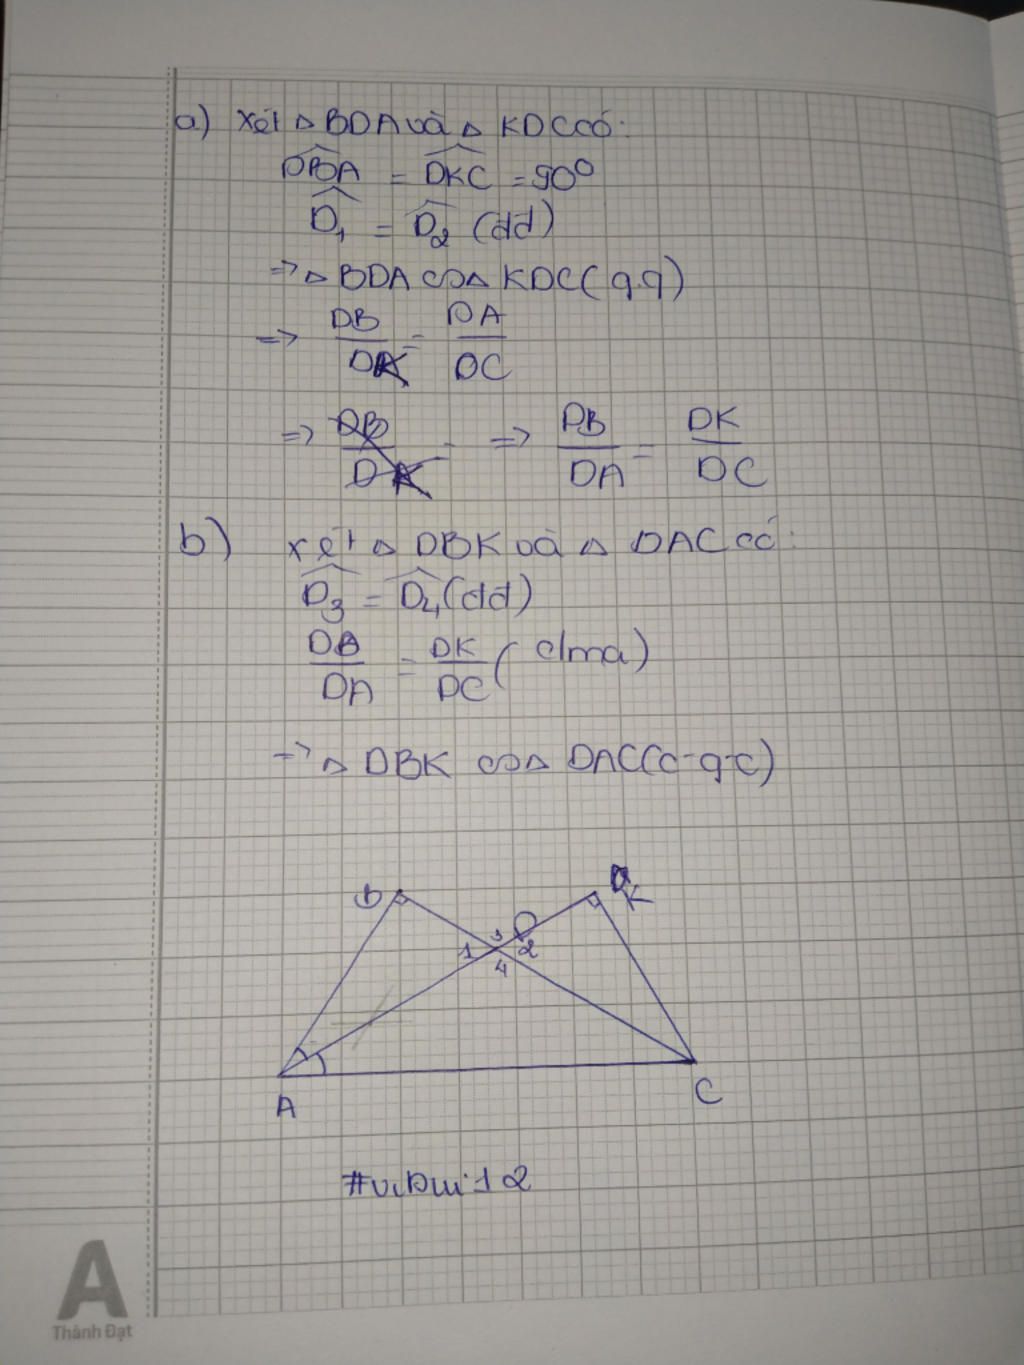 a) Xét △ BDA và △ KDC có:
$\widehat{DBA}$ = $\widehat{DKC}$ = 90⁰
$\widehat{D_1}$ = $\widehat{D_2}$ (dd)
=> △ BDA ∽ △ KDC (g.g)
=> $\frac{DB}{DK}$ = $\frac{DA}{DC}$
=> => $\frac{DB}{DA}$ = $\frac{DK}{DC}$
b) xét △ DBK và △ DAC có:
$\widehat{D_3}$ = $\widehat{D_4}$ (dd)
$\frac{DB}{DA}$ = $\frac{DK}{DC}$ (cma)
=> △ DBK ∽ △ DAC (c-g-c)
B K
D
3
1 2
4
A C
A
Thành Đạt